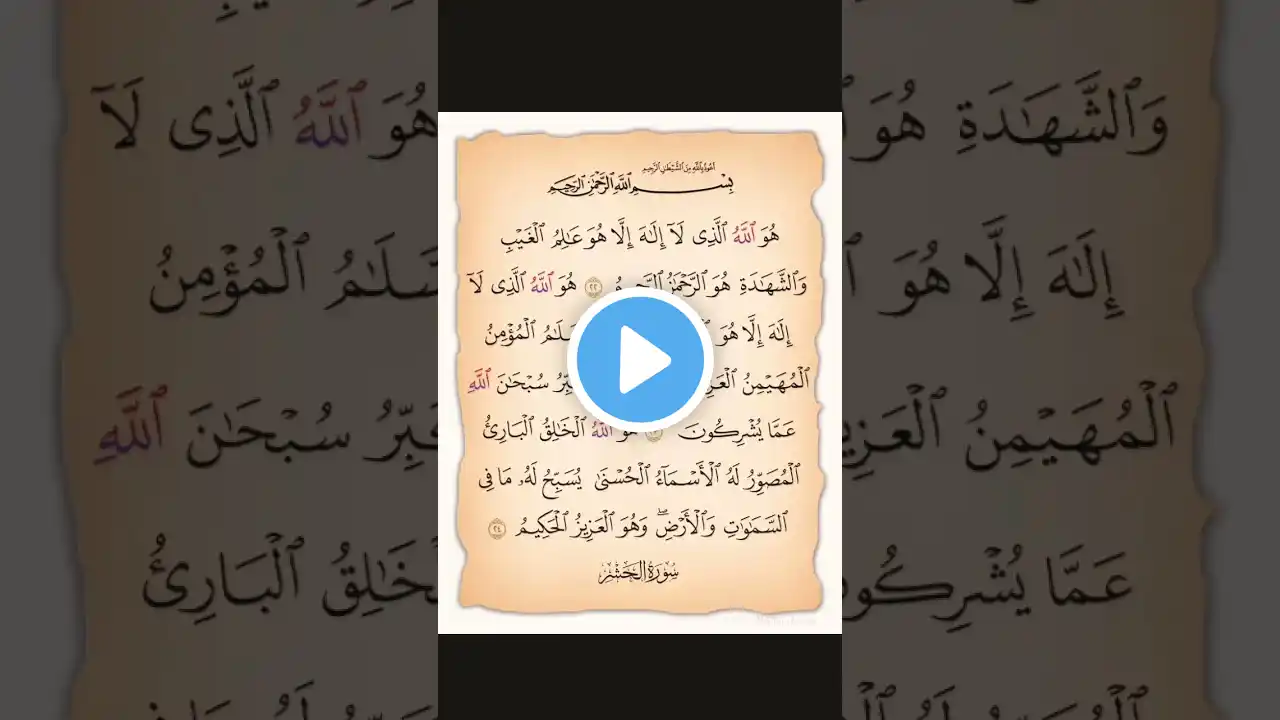 أعوذ بالله من الشيطان الرجيم
بِسْمِ ٱللَّهِ ٱلرَّحْمَٰنِ ٱلرَّحِيمِ
هُوَ ٱللَّهُ ٱلَّذِى لَآ إِلَٰهَ إِلَّا هُوَ عَٰلِمُ ٱلْغَيْبِ
وَٱلشَّهَٰدَةِ هُوَ ٱلرَّحْمَٰنُ ٱلرَّحِيمُ ٢٢ هُوَ ٱللَّهُ ٱلَّذِى لَآ
إِلَٰهَ إِلَّا هُوَ ٱلْمُؤْمِنُ
ٱلْمُهَيْمِنُ سُبْحَٰنَ ٱللَّهِ
عَمَّا يُشْرِكُونَ هُوَ ٱللَّهُ ٱلْخَٰلِقُ ٱلْبَارِئُ
ٱلْمُصَوِّرُ لَهُ ٱلْأَسْمَآءُ ٱلْحُسْنَىٰ يُسَبِّحُ لَهُۥ مَا فِى
ٱلسَّمَٰوَٰتِ وَٱلْأَرْضِ ۖ وَهُوَ ٱلْعَزِيزُ ٱلْحَكِيمُ ٢٤
سُورَةُ الحَشْرِ